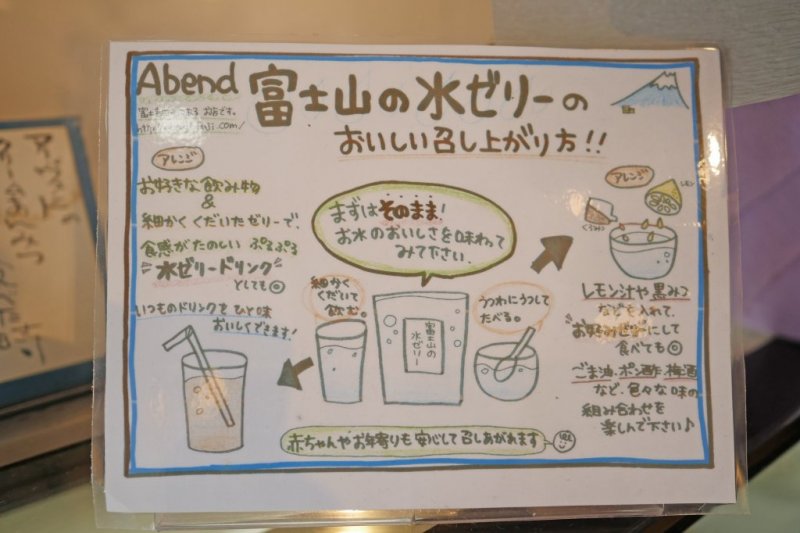 Abend 富士山の水ゼリーの
おいしい召し上がり方!!
お店です。
アレンジ
お好きな飲み物
&
細かくくだいたゼリーで、
食感がたのしい ぷるぷる
"水ゼリードリンク"
としても◎
いつものドリンクをひと味
おいしくできます!
まずはそのまま!
お水のおいしさを味わって
みて下さい。
細かく
くだいて
飲む。
富士山の
水ゼリー
うつわにうつして
たべる。
アレンジ
レモン
くろみつ
レモン汁や黒みつ
などを入れて、
"お好みゼリーにして
食べても◎
ごま油、ポン酢、梅酒
など、色々な味の
組み合わせを
楽しんで下さい♪
赤ちゃんやお年寄りも安心して召しあがれます